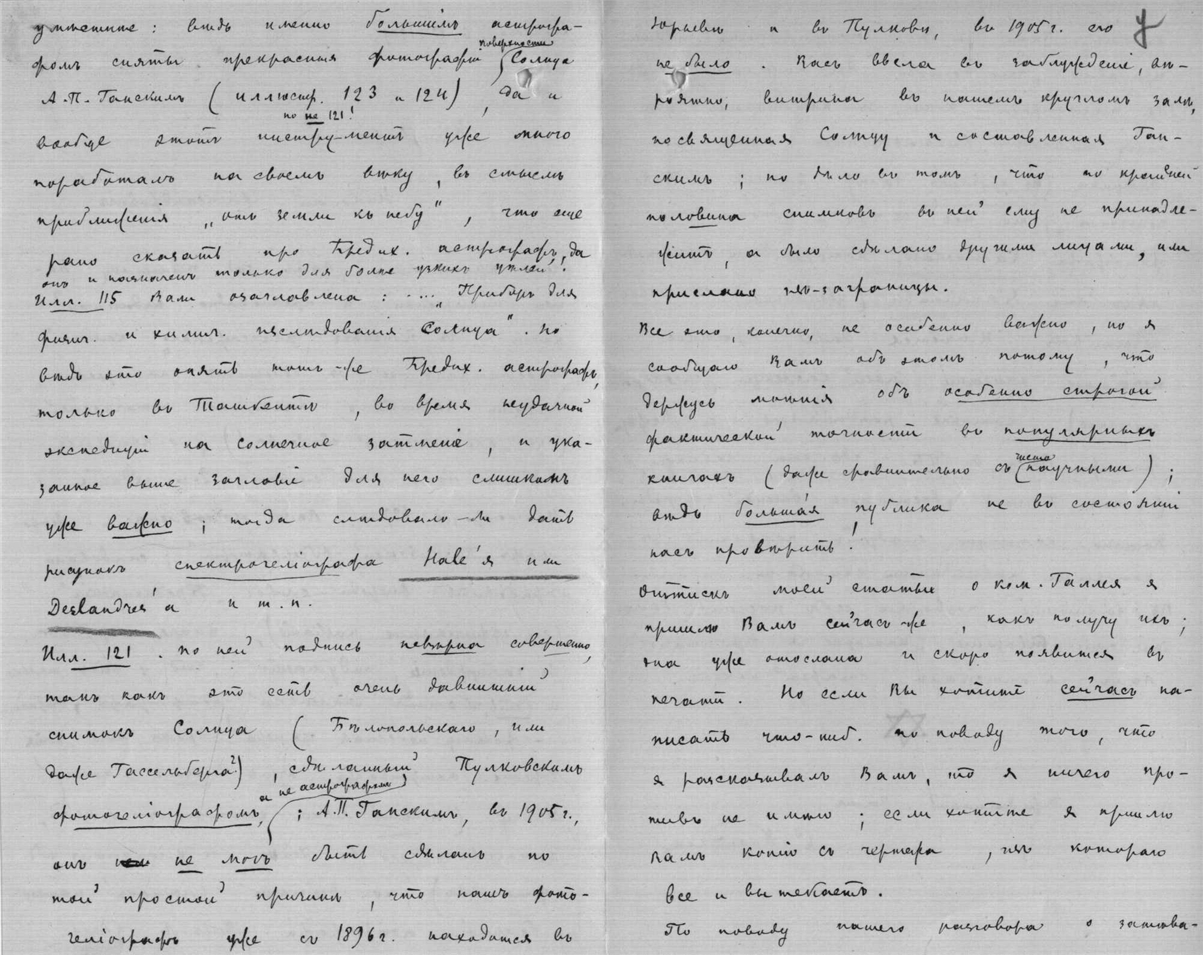 умѣстите: вѣдь именно большимъ астрогра-
фомъ сняты прекрасныя фотографіи поверхности Солнца
А.П. Ганскимъ (иллюстр. 123 и 124), да и
но не 121!
вообще этотъ инструментъ уже много
поработалъ на своемъ вѣку, въ смыслѣ
приближенія „отъ земли къ небу“, что еще
рано сказать про Бредих. астрографъ, да
онъ и назначенъ только для болѣе узкихъ цѣлей!
Илл. 115 Вами озаглавлена: .... „Приборъ для
физич. и химич. изслѣдованія Солнца“. Но
вѣдь это опять тотъ-же Бредих. астрографъ,
только въ Ташкентѣ, во время неудачной
экспедиціи на солнечное затменіе, и ука-
занное выше заглавіе для него слишкомъ
уже важно; тогда слѣдовало-бы дать
рисунокъ спектрогеліографа Hale'я или
Deslandres'а и т.п.
Илл. 121. По ней подпись невѣрна совершенно,
такъ какъ это есть очень давнишній
снимокъ Солнца (Бѣлопольскаго, или
даже Гассельберга?), сдѣланный Пулковскимъ
фотогеліографомъ, а не астрографомъ; А.П. Ганскимъ, въ 1905 г.,
онъ не могъ быть сдѣланъ по
той простой причинѣ, что нашъ фото-
геліографъ уже съ 1896 г. находится въ
Юрьевѣ и въ Пулковѣ, въ 1905 г. его
не было. Васъ ввела въ заблужденіе, вѣ-
роятно, витрина въ нашемъ кругломъ залѣ,
посвященная Солнцу и составленная Ган-
скимъ; но дѣло въ томъ, что по крайней
половина снимковъ въ ней ему не принадле-
житъ, а было сдѣлано другими лицами, или
прислано изъ-заграницы.
Все это, конечно, не особенно важно, но я
сообщаю Вамъ объ этомъ потому, что
держусь мнѣнія объ особенно строгой
фактической точности въ популярныхъ
книгахъ (даже сравнительно съ чисто научными);
вѣдь большая публика не въ состояніи
насъ провѣрить!
Оттискъ моей статьи о ком. Галлея я
пришлю Вамъ сейчасъ-же, какъ получу ихъ;
она уже отослана и скоро появится въ
печати. Но если Вы хотите сейчасъ на-
писать что-ниб. по поводу того, что
я разсказывалъ Вамъ, то я ничего про-
тивъ не имѣю; если хотите я пришлю
Вамъ копію съ чертежа, изъ котораго
все и вытекаетъ.
По поводу нашего разговора о